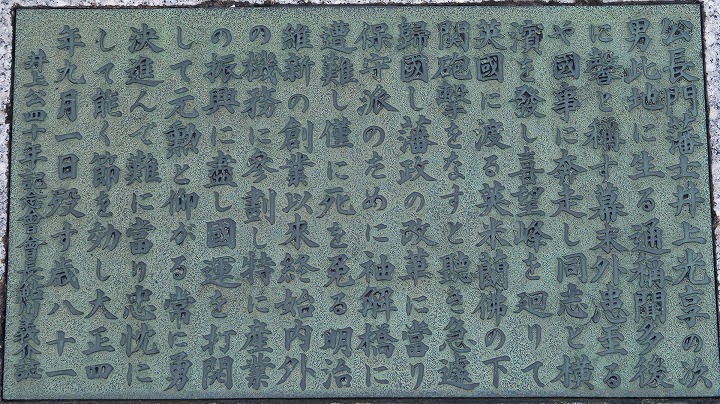 公長門藩士井上光享の次
男此地に生る通稱聞多後
に馨と稱す幕末外患至る
や國事に奔走し同志と横
濱を發し喜望峰を廻りて
英國に渡る英米蘭佛の下
関砲撃をなすと聽き急遽
歸國し藩政の改革に當り
保守派のために袖解橋に
遭難し僅に死を免る明治
維新の創業以來終始内外
の機務に参劃し特に産業
の振興に盡し國運を打開
して元勳と仰がる常に勇
決進んで難に當り忠忱に
して能く節を効し大正四
年九月一日歿す歳八十一
井上公四十年記念會會長